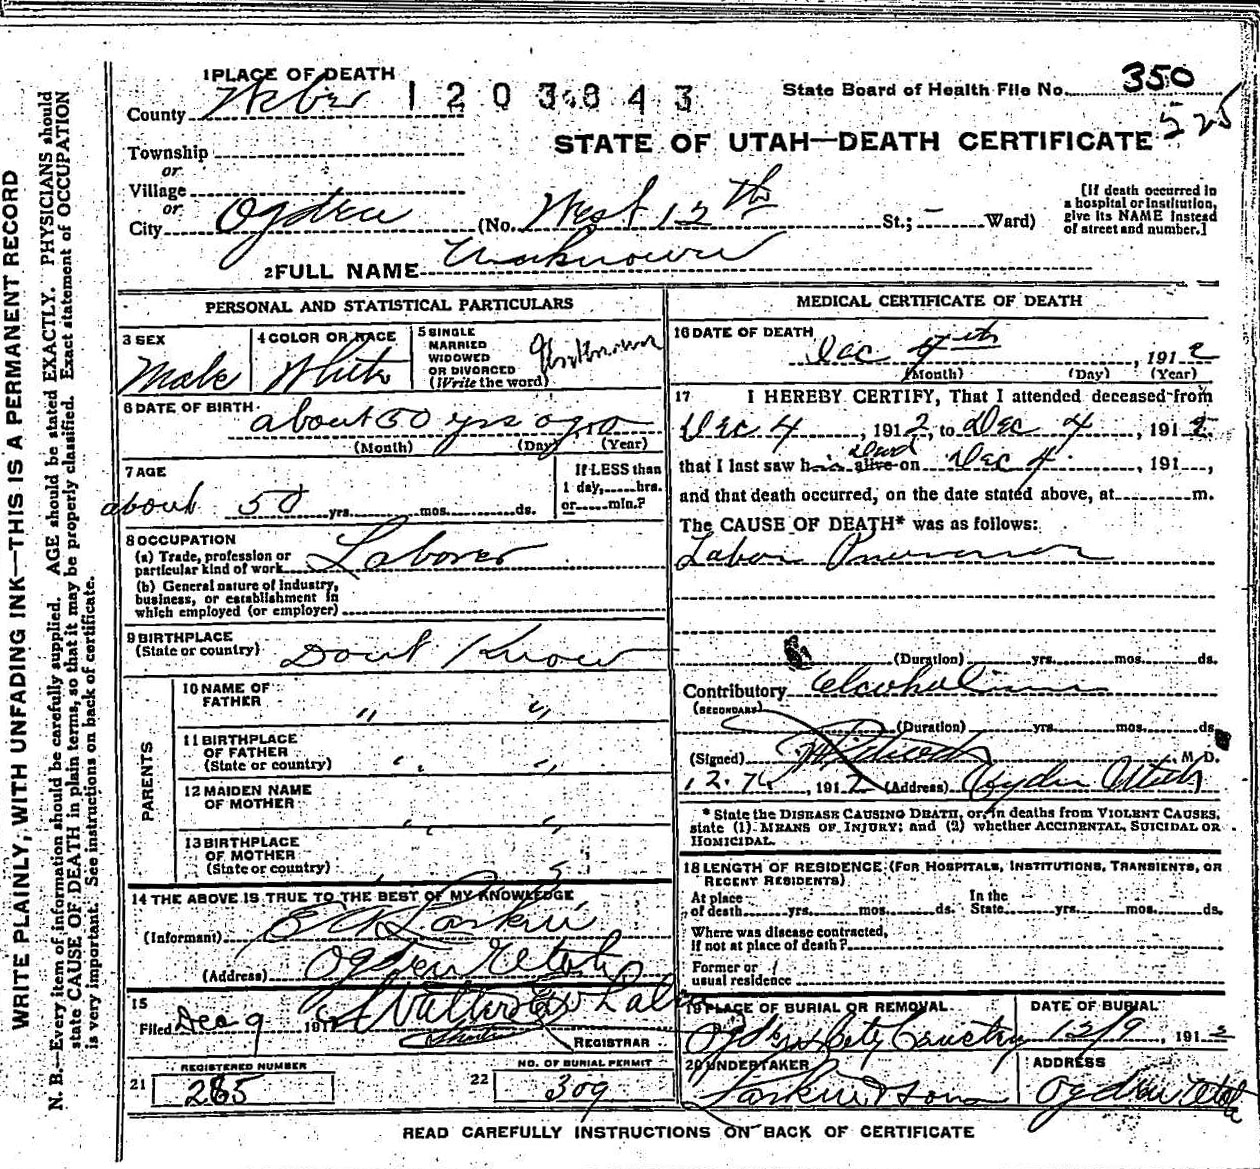 WRITE PLAINLY, WITH UNFADING INK—THIS IS A PERMANENT RECORD
N. B.—Every item of information should be carefully supplied. AGE should be stated EXACTLY. PHYSICIANS should
state CAUSE OF DEATH in plain terms, so that it may be properly classified. Exact statement of OCCUPATION
is very important. See instructions on back of certificate.
1 PLACE OF DEATH
County Weber 1203843
State Board of Health File No. 350
525
STATE OF UTAH—DEATH CERTIFICATE
Township
or
Village
or
City Ogden (No. West 12th St.; – Ward)
[If death occurred in
a hospital or institution,
give its NAME instead
of street and number.]
2 FULL NAME Unknown
PERSONAL AND STATISTICAL PARTICULARS
3 SEX
Male
4 COLOR OR RACE
White
5 SINGLE
MARRIED
WIDOWED
OR DIVORCED
(Write the word)
Unknown
6 DATE OF BIRTH
about 50 yrs ago
(Month) (Day) (Year)
7 AGE
about 50 yrs. mos. ds.
If LESS than
1 day, hrs.
or min.?
8 OCCUPATION
(a) Trade, profession or
particular kind of work Laborer
(b) General nature of Industry,
business, or establishment in
which employed (or employer)
9 BIRTHPLACE
(State or country) Dont Know
PARENTS
10 NAME OF
FATHER " "
11 BIRTHPLACE
OF FATHER
(State or country) " "
12 MAIDEN NAME
OF MOTHER
" "
13 BIRTHPLACE
OF MOTHER
(State or country)
14 THE ABOVE IS TRUE TO THE BEST OF MY KNOWLEDGE
(Informant) Larkin
(Address) Ogden Utah
15
Filed Dec 9 191 Walter
REGISTRAR
21 REGISTERED NUMBER
285
22 NO. OF BURIAL PERMIT
309
MEDICAL CERTIFICATE OF DEATH
16 DATE OF DEATH
Dec 4th, 1912
(Month) (Day) (Year)
17 I HEREBY CERTIFY, That I attended deceased from
Dec 4, 1912, to Dec 4, 1912
that I last saw him alive on Dead Dec 4, 191
and that death occurred, on the date stated above, at m.
The CAUSE OF DEATH* was as follows:
Labor Pneumonia
(Duration) yrs. mos. ds.
Contributory Alcoholism
(SECONDARY)
(Duration) yrs. mos. ds.
(Signed) M. D.
12.7, 1912 (Address) Ogden Utah
* State the DISEASE CAUSING DEATH, or, in deaths from VIOLENT CAUSES,
state (1) MEANS OF INJURY; and (2) whether ACCIDENTAL, SUICIDAL OR
HOMICIDAL.
18 LENGTH OF RESIDENCE (FOR HOSPITALS, INSTITUTIONS, TRANSIENTS, OR
RECENT RESIDENTS)
At place
of death yrs. mos. ds.
In the
State yrs. mos. ds.
Where was disease contracted,
if not at place of death?
Former or
usual residence
19 PLACE OF BURIAL OR REMOVAL
Ogden City Cemetery
DATE OF BURIAL
12/9, 1912
20 UNDERTAKER
Larkin & Sons
ADDRESS
Ogden Utah
READ CAREFULLY INSTRUCTIONS ON BACK OF CERTIFICATE